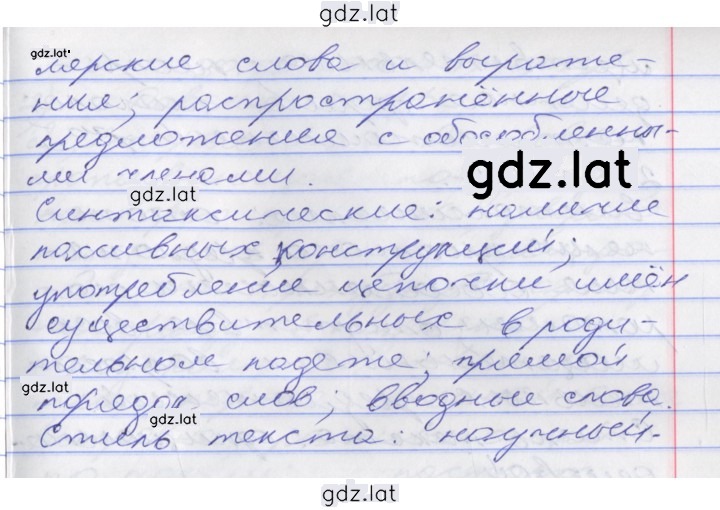 gdz.lat
gdz.lat
мерские слова и выраже-
ния; распространённые
предложения с обособленны-
ми членами.
gdz.lat
gdz.lat
Синтаксические: наличие
пассивных конструкций;
употребление цепочки имён
существительных в роди-
тельном падеже; прямой
gdz.lat
порядок слов; вводные слова.
gdz.lat
Стиль текста: научный.
gdz.lat